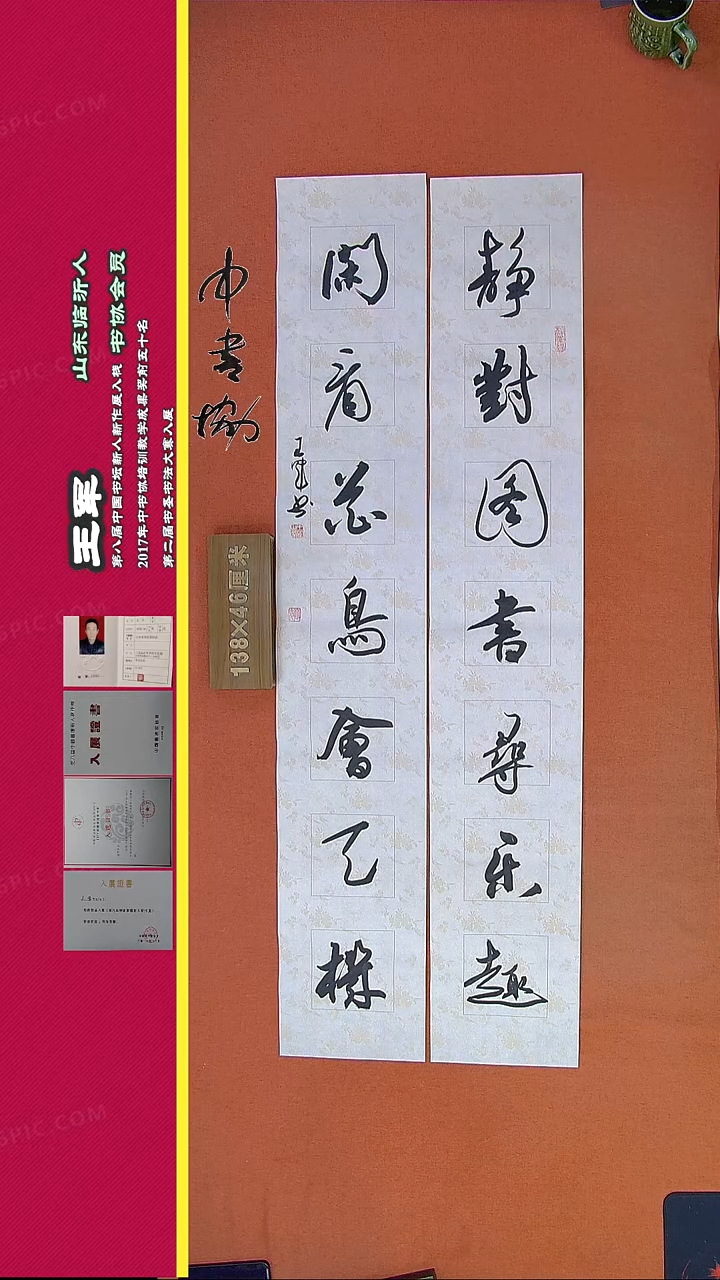 靜對图書尋乐趣
閑看花鳥會天機
王軍书
中書協
138×46厘米
山东临沂人
书协会员
王军
第八届中国书坛新人新作展入展
2017年中书协培训教学成果奖前五十名
第二届书圣书法大赛入展
入展證書
入展證書